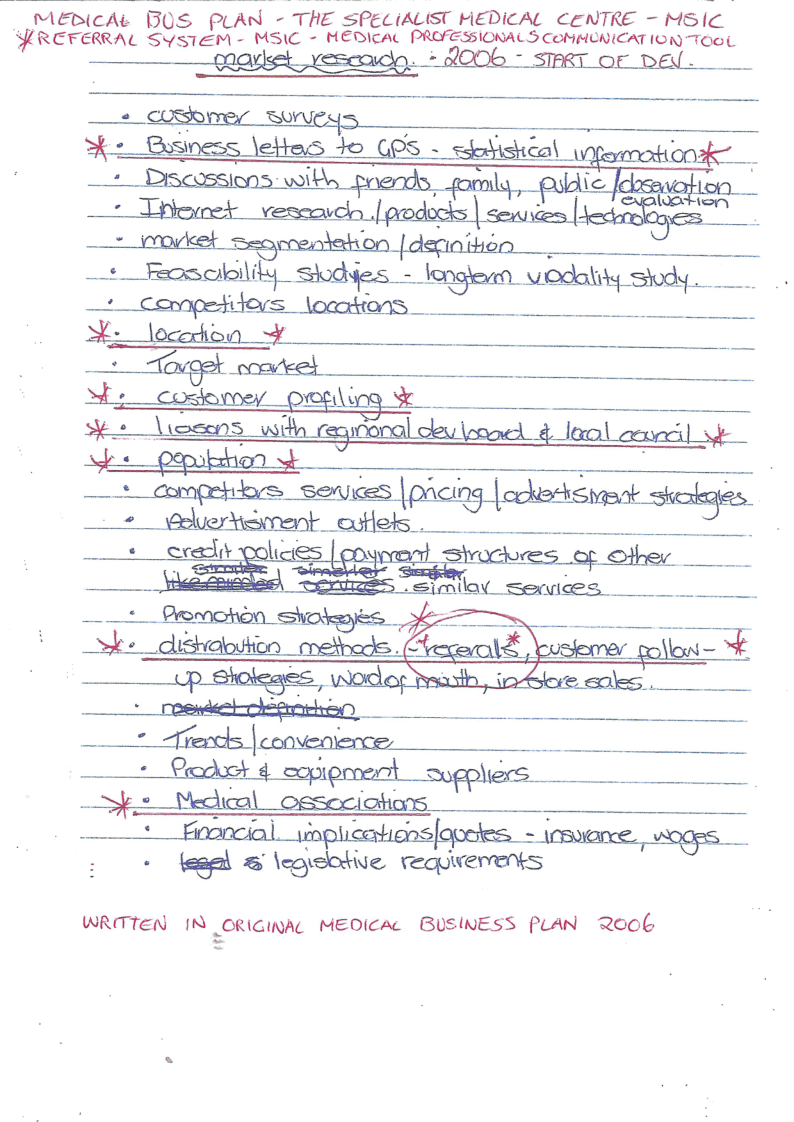 MEDICAL BUS PLAN - THE SPECIALIST MEDICAL CENTRE - MSIC
*REFERRAL SYSTEM - MSIC - MEDICAL PROFESSIONALS COMMUNICATION TOOL
market research. : 2006 - START OF DEV.
• customer surveys
* • Business letters to GP's - statistical information *
• Discussions with friends, family, public / observation
evaluation
• Internet research. / products / services / technologies
• market segmentation / definition
• Feascibility studyies - longterm viadality study.
• competitors locations
* • location *
• Target market
* • customer profiling *
* • liasons with reginional dev board & local council *
* • population *
• competitors services / pricing / advertisment strategies
• Advertisment outlets.
• credit policies / payment structures of other
services. similar services
• Promotion strategies *
* • distrabution methods. - *referals*, customer follow- *
up strategies, word of mouth, in store sales.
• market definition
• Trends / convenience
• Product & equipment suppliers
* • Medical associations
• Financial implications/quotes - insurance, wages
• legal & legislative requirements
WRITTEN IN ORIGINAL MEDICAL BUSINESS PLAN 2006